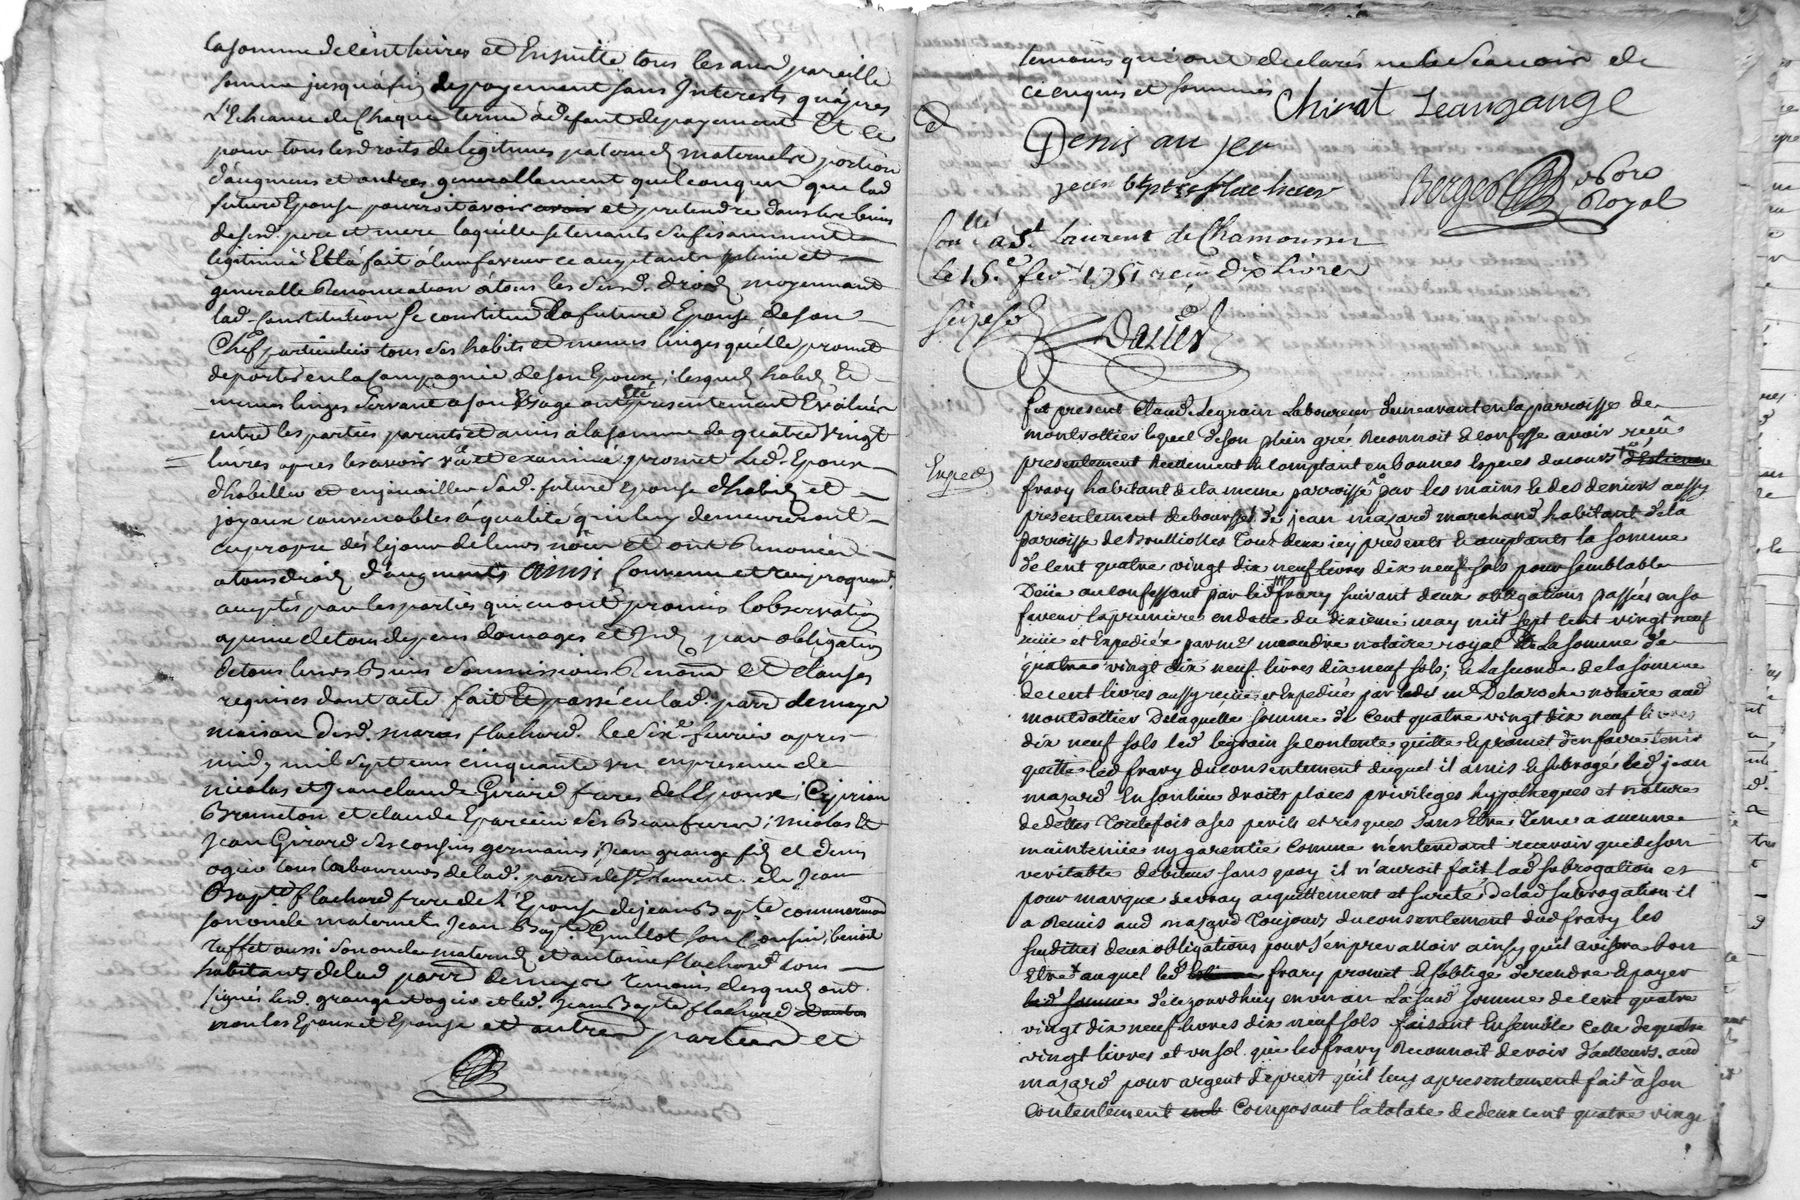 la somme de cent livres et Ensuitte tous les ans pareille
somme jusquáfin de payement sans Interests quápres
L'Echeance de Chaque terme á défaut de payement Et ce
pour tous les droits de legitimes paternels maternels portion
d'augmens et autres generallement quelconques que lad
future Epouse pourroit avoir et pretendre dans les biens
de sesd. pere et mere laquelle se tenants sufisamment
legitimée Et a fait á leur faveur ce aceptants pleine et
generalle Renonciation á tous les susd. droits moyennant
lad. Constitution Se constitue La future Epouse de son
Chef particulier tous ses habits et menus linges quélle promet
de porter en la Compagnie de son Epoux, lesquels habits Et
menus linges servant a son Usage ont Eté presentement Evalués
entre les parties parents et amis á la somme de quatre vingt
livres apres les avoir vû et examiné promet Led. Epoux
d'habiller et enjoüailler sad. future Epouse d'habits et
joyaux convenables á sa qualité qui luy demeureront
en propre dés le jour de leurs nôces et ont Renoncés
a tous droits d'augments ainsi Convenu et reciproquemt
aceptés par les parties qui en ont promis l'observation
a peine de tous depens domages et Ints par obligation
de tous leurs Biens Soumissions Renond Et clauses
requises dont acte fait Et passé en lad. parr de meys
maison dud. marc flachard. le six fevrier apres
midy mil sept cens cinquante un en presence de
nicolas et Jean claude Girard freres de l'Epoux, Ciprien
Bruneton et claude Eparcieu ses Beaufreres; nicolas Et
Jean Girard ses cousins germains; jean grange fils et denis
ogier tous laboureurs de lad. parr de St laurent. de Jean
Bapte flachard frere de l'Epouse de jean Bapte commarmond
son oncle maternel Jean Bapte Guillot son Cousin; benoit
ruffet aussi son oncle maternel et antoine flachard tous
habitants de lad parr de meys temoins desquels ont
signés led. grange et ogier et led. Jean Bapte flachard
non les Epoux et Epouse et autres parties et
temoins qui ont declarés ne le scavoir de
ce enquis et sommés
Chirat Jean gange
Denis au jer
jean bptste flachars
Berger Noro
Royal
Conllé a St. Laurent de Chamousset
Le 15.e fevr 1751 recu dix Livres
seize s
Dalier
fut present Claude Legrain Laboureur demeurant en la parroisse de
montrottier lequel de son plein gré Reconnoit Et confesse avoir recûs
Exped
presentement Reellement Et comptant en bonnes Especes du cours
frary habitant de la meme parroisse par les mains Et des deniers aussy
presentement deboursses de jean mazard marchand habitant de la
parroisse de Brulliolles tout deux icy presents Et aceptants la somme
de cent quatre vingt dix neuf livres dix neuf sols pour semblable
Deüe au confessant par led frary suivant deux obligations passées en sa
faveur la premiere en datte du dixieme may mil sept cent vingt neuf
recüe et Expediée par me meaudre notaire royal de La somme de
quatre vingt dix neuf livres dix neuf sols; Et La seconde de la somme
de cent livres aussy recüe et Expediée par ledit me Delaroche notaire aud
montrottier De laquelle somme de cent quatre vingt dix neuf livres
dix neuf sols led legrain se contente quitte Et promet d'en faire tenir
quitte led frary du consentement duquel il a mis Et subrogé led jean
mazard En son lieu droits places privileges hypotheques et natures
de dettes toutefois a ses perils et risques sans Etre Tenu a aucune
maintenüe ny garentie Comme n'entendant recevoir que de son
veritable debiteur sans quoy il n'auroit fait lad subrogation et
pour marque de vray aquittement et sureté de lad subrogation il
a Remis aud mazard toujours du consentement dud frary les
susdites deux obligations pour s'en prevalloir ainsy quil avisera bon
Etre auquel led frary promet Et s'oblige de rendre Et payer
d'aujourdhuy en un an La susd somme de cent quatre
vingt dix neuf livres dix neuf sols faisant Ensemble Celle de quatre
vingt livres et un sol que led frary Reconnoit devoir d'ailleurs aud
mazard pour argent de prest quil luy a presentement fait à son
Contentement Composant la totale de deux cent quatre vingt